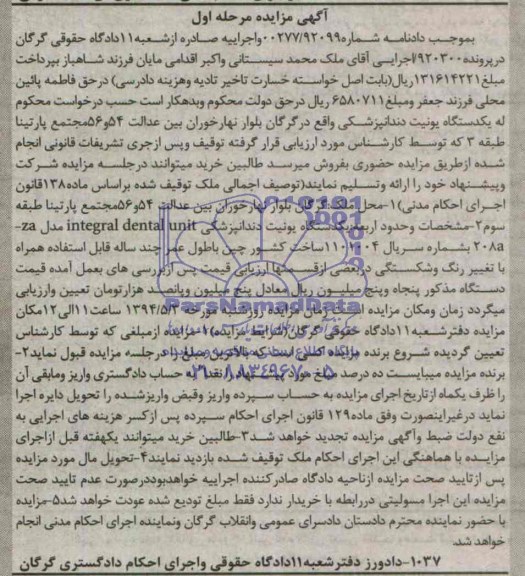 آگهی مزایده مرحله اول
بموجب دادنامه شماره ۰۰۲۷۷/۹۲۰۹۹ واجراییه صادره ازشعبه۱۱دادگاه حقوقی گرگان
درپرونده۹۲۰۳۰۰/اجرایی آقای ملک محمد سیستانی واکبر اقدامی مایان فرزند شاهباز بپرداخت
مبلغ۱۳۱۶۱۴۲۲۱ریال(بابت اصل خواسته خسارت تاخیر تادیه وهزینه دادرسی) درحق فاطمه پائین
محلی فرزند جعفر ومبلغ۶۵۸۰۷۱۱ ریال درحق دولت محکوم وبدهکار است حسب درخواست محکوم
له یکدستگاه یونیت دندانپزشکی واقع درگرگان بلوار نهارخوران بین عدالت ۵۴و۵۶مجتمع پارتینا
طبقه ۳ که توسط کارشناس مورد ارزیابی قرار گرفته توقیف وپس ازجری تشریفات قانونی انجام
شده ازطریق مزایده حضوری بفروش میرسد طالبین خرید میتوانند درجلسه مزایده شرکت
وپیشنهاد خود را ارائه وتسلیم نمایند(توصیف اجمالی ملک توقیف شده براساس ماده۱۳۸قانون
اجرای احکام مدنی)۱-محل ملک:گرگان بلوار نهارخوران بین عدالت ۵۴و۵۶مجتمع پارتینا طبقه
سوم۲-مشخصات وحدود اربعه:یکدستگاه یونیت دندانپزشکی integral dental unit مدل za-
۲۰۸a بشماره سریال ۱۱۰۲۰۰۴ساخت کشور چین باطول عمر چند ساله قابل استفاده همراه
با تغییر رنگ وشکستگی دربعضی ازقسمتها ارزیابی قیمت پس ازبررسی های بعمل آمده قیمت
دستگاه مذکور پنجاه وپنج میلیون ریال معادل پنج میلیون وپانصد هزارتومان تعیین وارزیابی
میگردد زمان ومکان مزایده زمان مزایده روزشنبه مورخه ۱۳۹۴/۵/۳ ساعت ۱۱الی۱۲مکان
مزایده دفترشعبه۱۱دادگاه حقوقی گرگان(شرایط مزایده)۱-مزایده ازمبلغی که توسط کارشناس
تعیین گردیده شروع برنده مزایده کسی است که بالاترین مبلغ را درجلسه مزایده قبول نماید۲-
برنده مزایده میبایست ده درصد مبلغ مورد پیشنهاد را نقدا به حساب دادگستری واریز ومابقی آن
را ظرف یکماه ازتاریخ اجرای مزایده به حساب سپرده واریز وقبض واریزشده را تحویل دایره اجرا
نماید درغیراینصورت وفق ماده۱۲۹ قانون اجرای احکام سپرده پس ازکسر هزینه های اجرایی به
نفع دولت ضبط وآگهی مزایده تجدید خواهد شد۳-طالبین خرید میتوانند یکهفته قبل ازاجرای
مزایده با هماهنگی این اجرای احکام ملک توقیف شده بازدید نمایند۴-تحویل مال مورد مزایده
پس ازتایید صحت مزایده ازناحیه دادگاه صادرکننده اجراییه خواهدبوددرصورت عدم تایید صحت
مزایده این اجرا مسولیتی دررابطه با خریدار ندارد فقط مبلغ تودیع شده عودت خواهد شد۵-مزایده
با حضور نماینده محترم دادستان دادسرای عمومی وانقلاب گرگان ونماینده اجرای احکام مدنی انجام
خواهد شد.
۱۰۳۷-دادورز دفترشعبه۱۱دادگاه حقوقی واجرای احکام دادگستری گرگان
ParsNamadData
۰۲۱-۸۸۳۴۹۶۷۰-۵